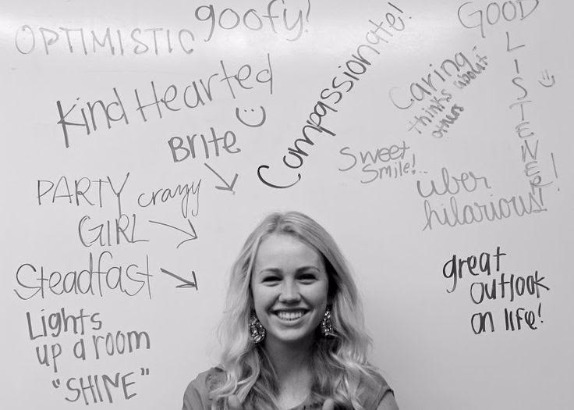 OPTIMISTIC
goofy!
Kind Hearted
Brite
PARTY crazy
GIRL
Steadfast
Lights
up a room
"SHINE"
Compassionate!
GOOD
LISTENER!
Caring,
thinks about
others
Sweet
Smile!
über
hilarious!
great
outlook
on life!